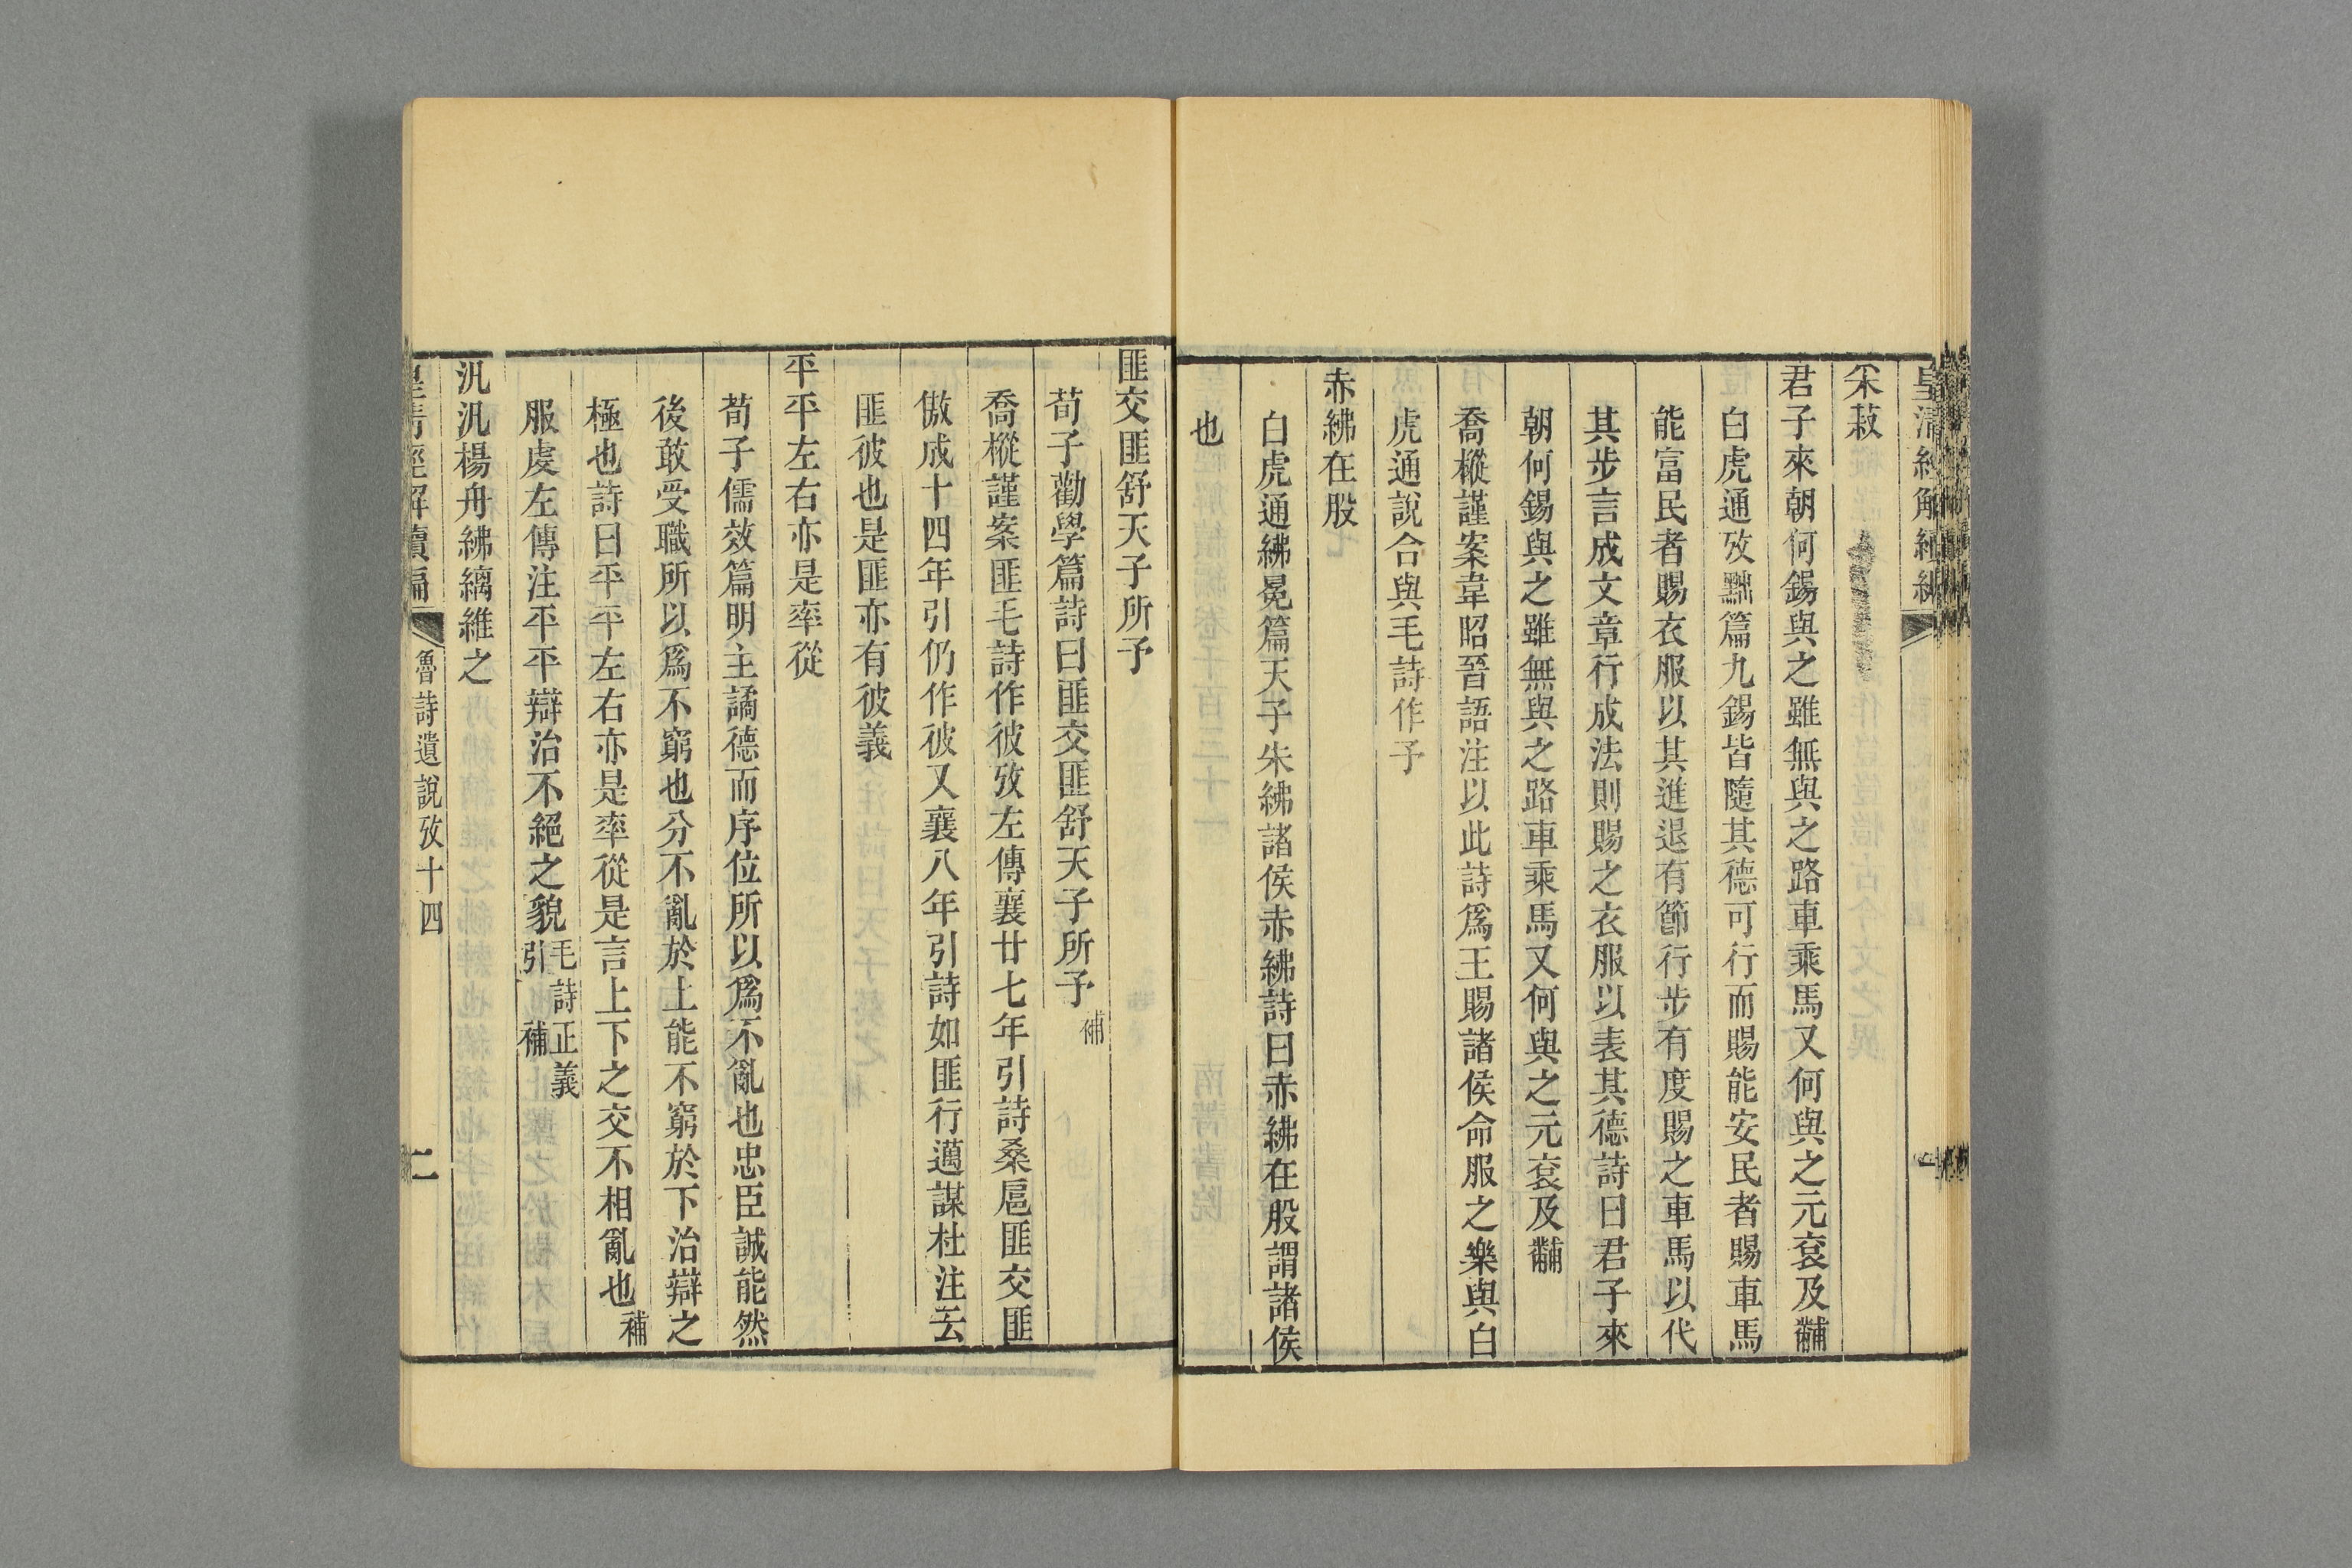 皇清經解續
一
采菽
君子來朝何錫與之雖無與之路車乘馬又何與之元袞及黼
白虎通攷黜篇九錫皆隨其德可行而賜能安民者賜車馬
能富民者賜衣服以其進退有節行步有度賜之車馬以代
其步言成文章行成法則賜之衣服以表其德詩曰君子來
朝何錫與之雖無與之路車乘馬又何與之元袞及黼
喬樅謹案韋昭晉語注以此詩爲王賜諸侯命服之樂與白
虎通說合與毛詩作予
赤紼在股
白虎通紼冕篇天子朱紼諸侯赤紼詩曰赤紼在股謂諸侯
也
匪交匪舒天子所予
荀子勸學篇詩曰匪交匪舒天子所予補
喬樅謹案匪毛詩作彼攷左傳襄廿七年引詩桑扈匪交匪
傲成十四年引仍作彼又襄八年引詩如匪行邁謀杜注云
匪彼也是匪亦有彼義
平平左右亦是率從
荀子儒效篇明主譎德而序位所以爲不亂也忠臣誠能然
後敢受職所以爲不窮也分不亂於上能不窮於下治辯之
極也詩曰平平左右亦是率從是言上下之交不相亂也補
服虔左傳注平平辯治不絕之貌毛詩正義引 補
汎汎楊舟紼縭維之
皇清經解續編
魯詩遺說攷十四
二